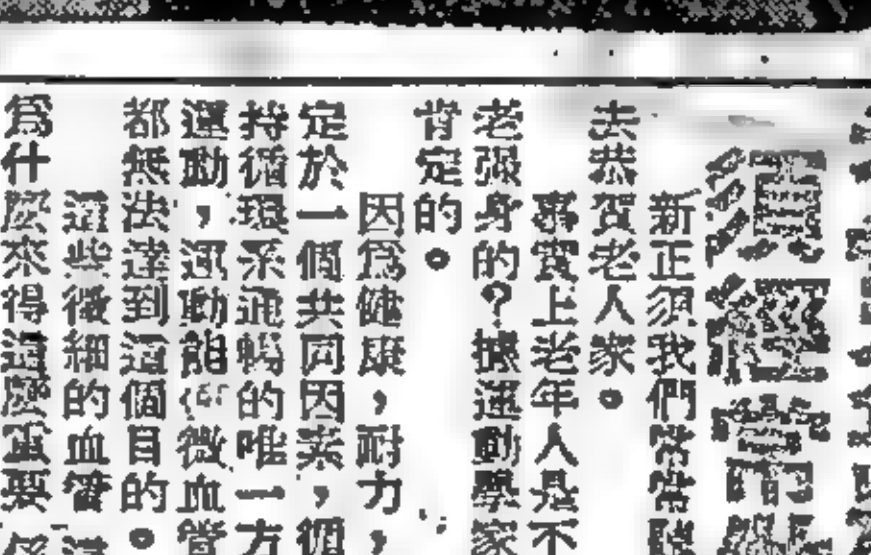 須經常
新正須我們常常
去恭賀老人家。
事實上老年人是不
老强身的?據運動學家
肯定的。
因爲健康,耐力,
定於一個共同因素,循
持循環系通暢的唯一方
運動,運動能 微血管
都無法達到這個目的。
這些微細的血管
爲什麼來得這麼重要